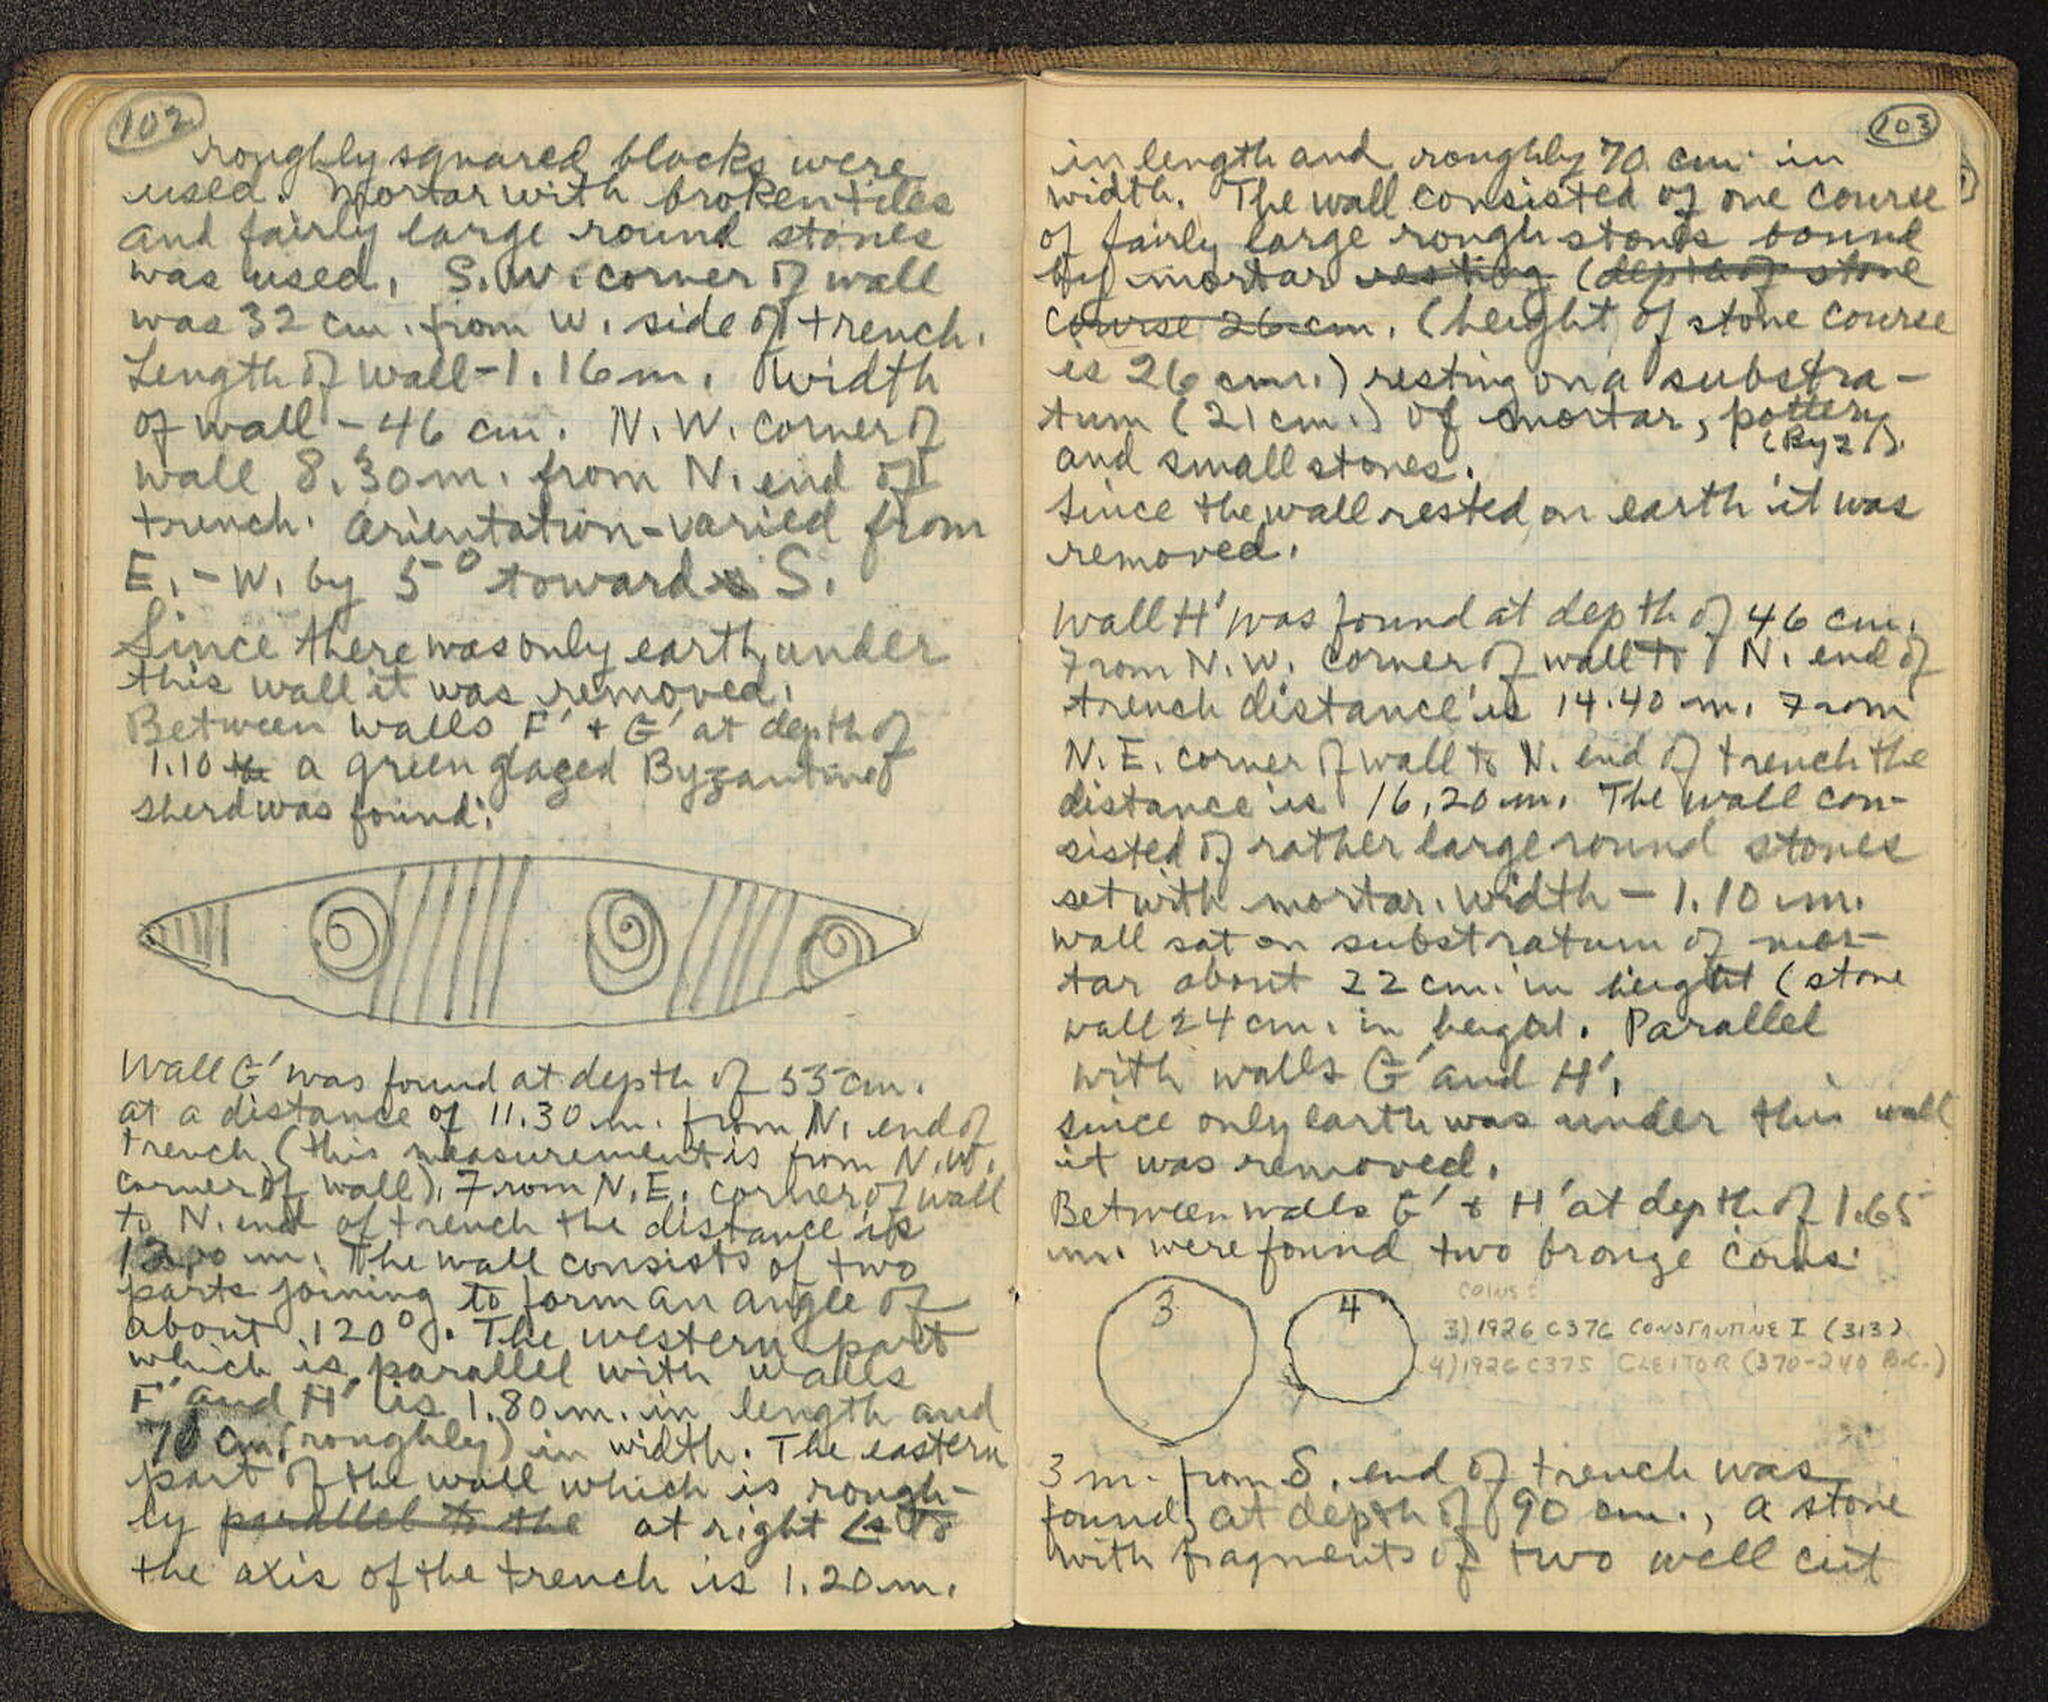 102
roughly squared blocks were
used. Mortar with broken tiles
and fairly large round stones
was used. S.W. corner of wall
was 32 cm. from W. side of trench.
Length of wall - 1.16 m. Width
of wall - 46 cm. N.W. corner of
wall 8.30 m. from N. end of
trench. Orientation - varied from
E. - W. by 5° toward S.
Since there was only earth under
this wall it was removed.
Between walls F' + G' at depth of
1.10 a green glazed Byzantine
sherd was found:
Wall G' was found at depth of 55 cm.
at a distance of 11.30 m. from N. end of
trench (this measurement is from N.W.
corner of wall). From N.E. corner of wall
to N. end of trench the distance is
m. The wall consists of two
parts joining to form an angle of
about 120°. The western part
which is parallel with walls
F' and H' is 1.80 m. in length and
70 cm. (roughly) in width. The eastern
part of the wall which is rough-
ly parallel to the at right ∠s to
the axis of the trench is 1.20 m.
103
in length and roughly 70 cm. in
width. The wall consisted of one course
of fairly large rough stones bound
by mortar resting (depth of stone
course 26 cm. (height of stone course
is 26 cm.) resting on a substra-
tum (21 cm.) of mortar, pottery
(Byz.)
and small stones.
Since the wall rested on earth it was
removed.
Wall H' was found at depth of 46 cm.
From N.W. corner of wall to N. end of
trench distance is 14.40 m. From
N.E. corner of wall to N. end of trench the
distance is 16.20 m. The wall con-
sisted of rather large round stones
set with mortar. Width - 1.10 m.
Wall sat on substratum of mor-
tar about 22 cm. in height (stone
wall 24 cm. in height. Parallel
with walls G' and H'.
Since only earth was under this wall
it was removed.
Between walls G' + H' at depth of 1.65
m. were found two bronze coins:
3
4
COINS:
3) 1926 C376 CONSTANTINE I (313)
4) 1926 C375 CLEITOR (370-240 B.C.)
3 m. from S. end of trench was
found, at depth of 90 cm., a stone
with fragments of two well cut